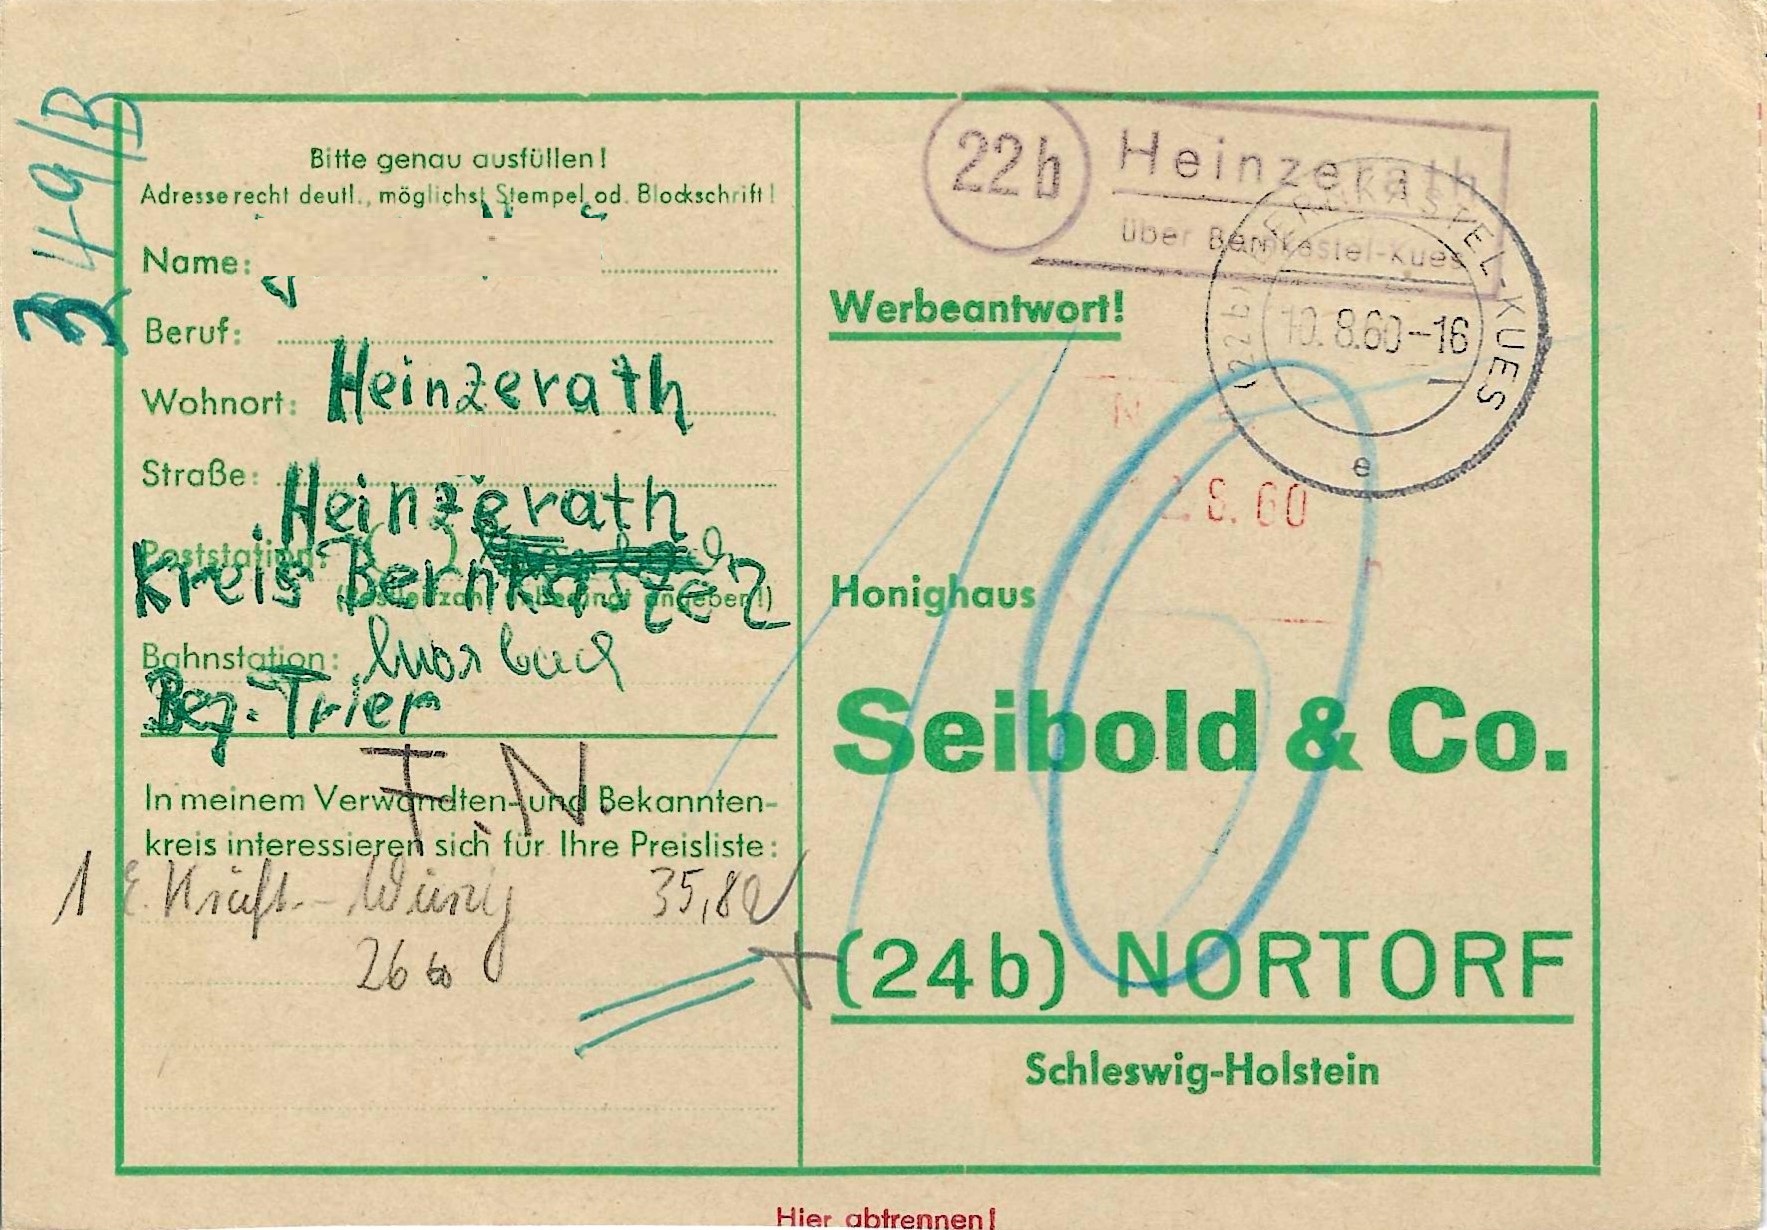 349/B
Bitte genau ausfüllen!
Adresse recht deutl., möglichst Stempel od. Blockschrift!
Name:
Beruf:
Wohnort: Heinzerath
Straße:
Heinzerath
Poststation:
Kreis Bernkastel
(Postleitzahl unbedingt angeben!)
Bahnstation: Morbach
Bez. Trier
F.N.
In meinem Verwandten- und Bekannten-
kreis interessieren sich für Ihre Preisliste:
1 35,80
26
22b
Heinzerath
über Bernkastel-Kues
(22b) BERNKASTEL-KUES
10.8.60-16
e
Werbeantwort!
2.8.60
10
Honighaus
Seibold & Co.
(24b) NORTORF
Schleswig-Holstein
Hier abtrennen!